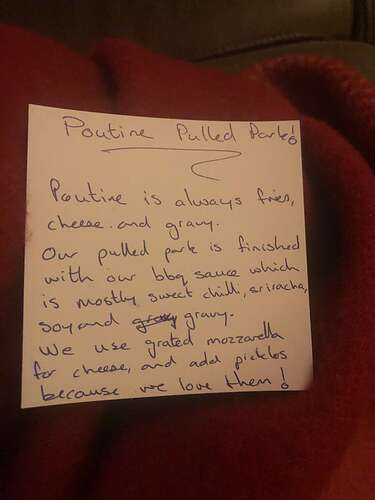 Poutine Pulled Pork!
Poutine is always fries,
cheese and gravy.
Our pulled pork is finished
with our bbq sauce which
is mostly sweet chilli, sriracha,
soy and gravy gravy.
We use grated mozzarella
for cheese, and add pickles
because we love them!